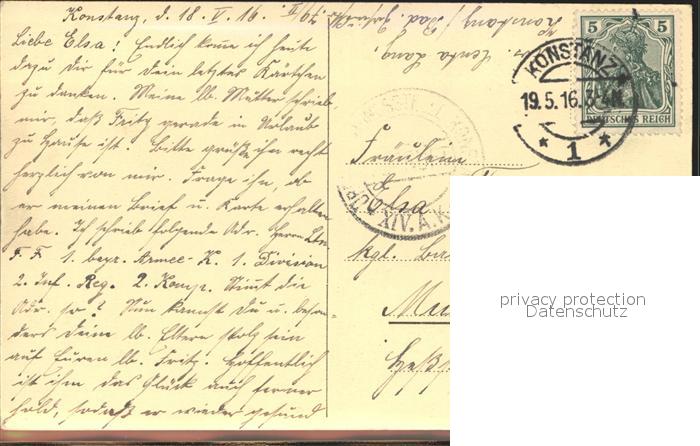 Konstanz, d. 18. V. 16.
Liebe Elsa! Endlich komme ich heute
dazu Dir für Dein letztes Kärtchen
zu danken. Meine lb. Mutter schrieb
mir, daß Fritz gerade in Urlaub
zu Hause ist. Bitte grüße ihn recht
herzlich von mir. Frage ihn, ob
er meinen Brief u. Karte erhalten
habe. Ich schrieb folgende Adr. Herrn Ltn.
F. F. 1. bayr. Armee-K. 1. Division
2. Inf. Reg. 2. Komp. Stimmt die
Adr. so? Nun kannst Du u. beson-
ders Deine lb. Eltern stolz sein
auf Euren lb. Fritz. Hoffentlich
ist ihm das Glück auch ferner
hold, sodaß er wieder gesund
Konstanz / Bad.
Senta Lang
5 5
DEUTSCHES REICH
KONSTANZ
19.5.16. 3-4N
* 1 *
XIV. A.K.
Fräulein
Elsa
kgl.
privacy protection
Datenschutz